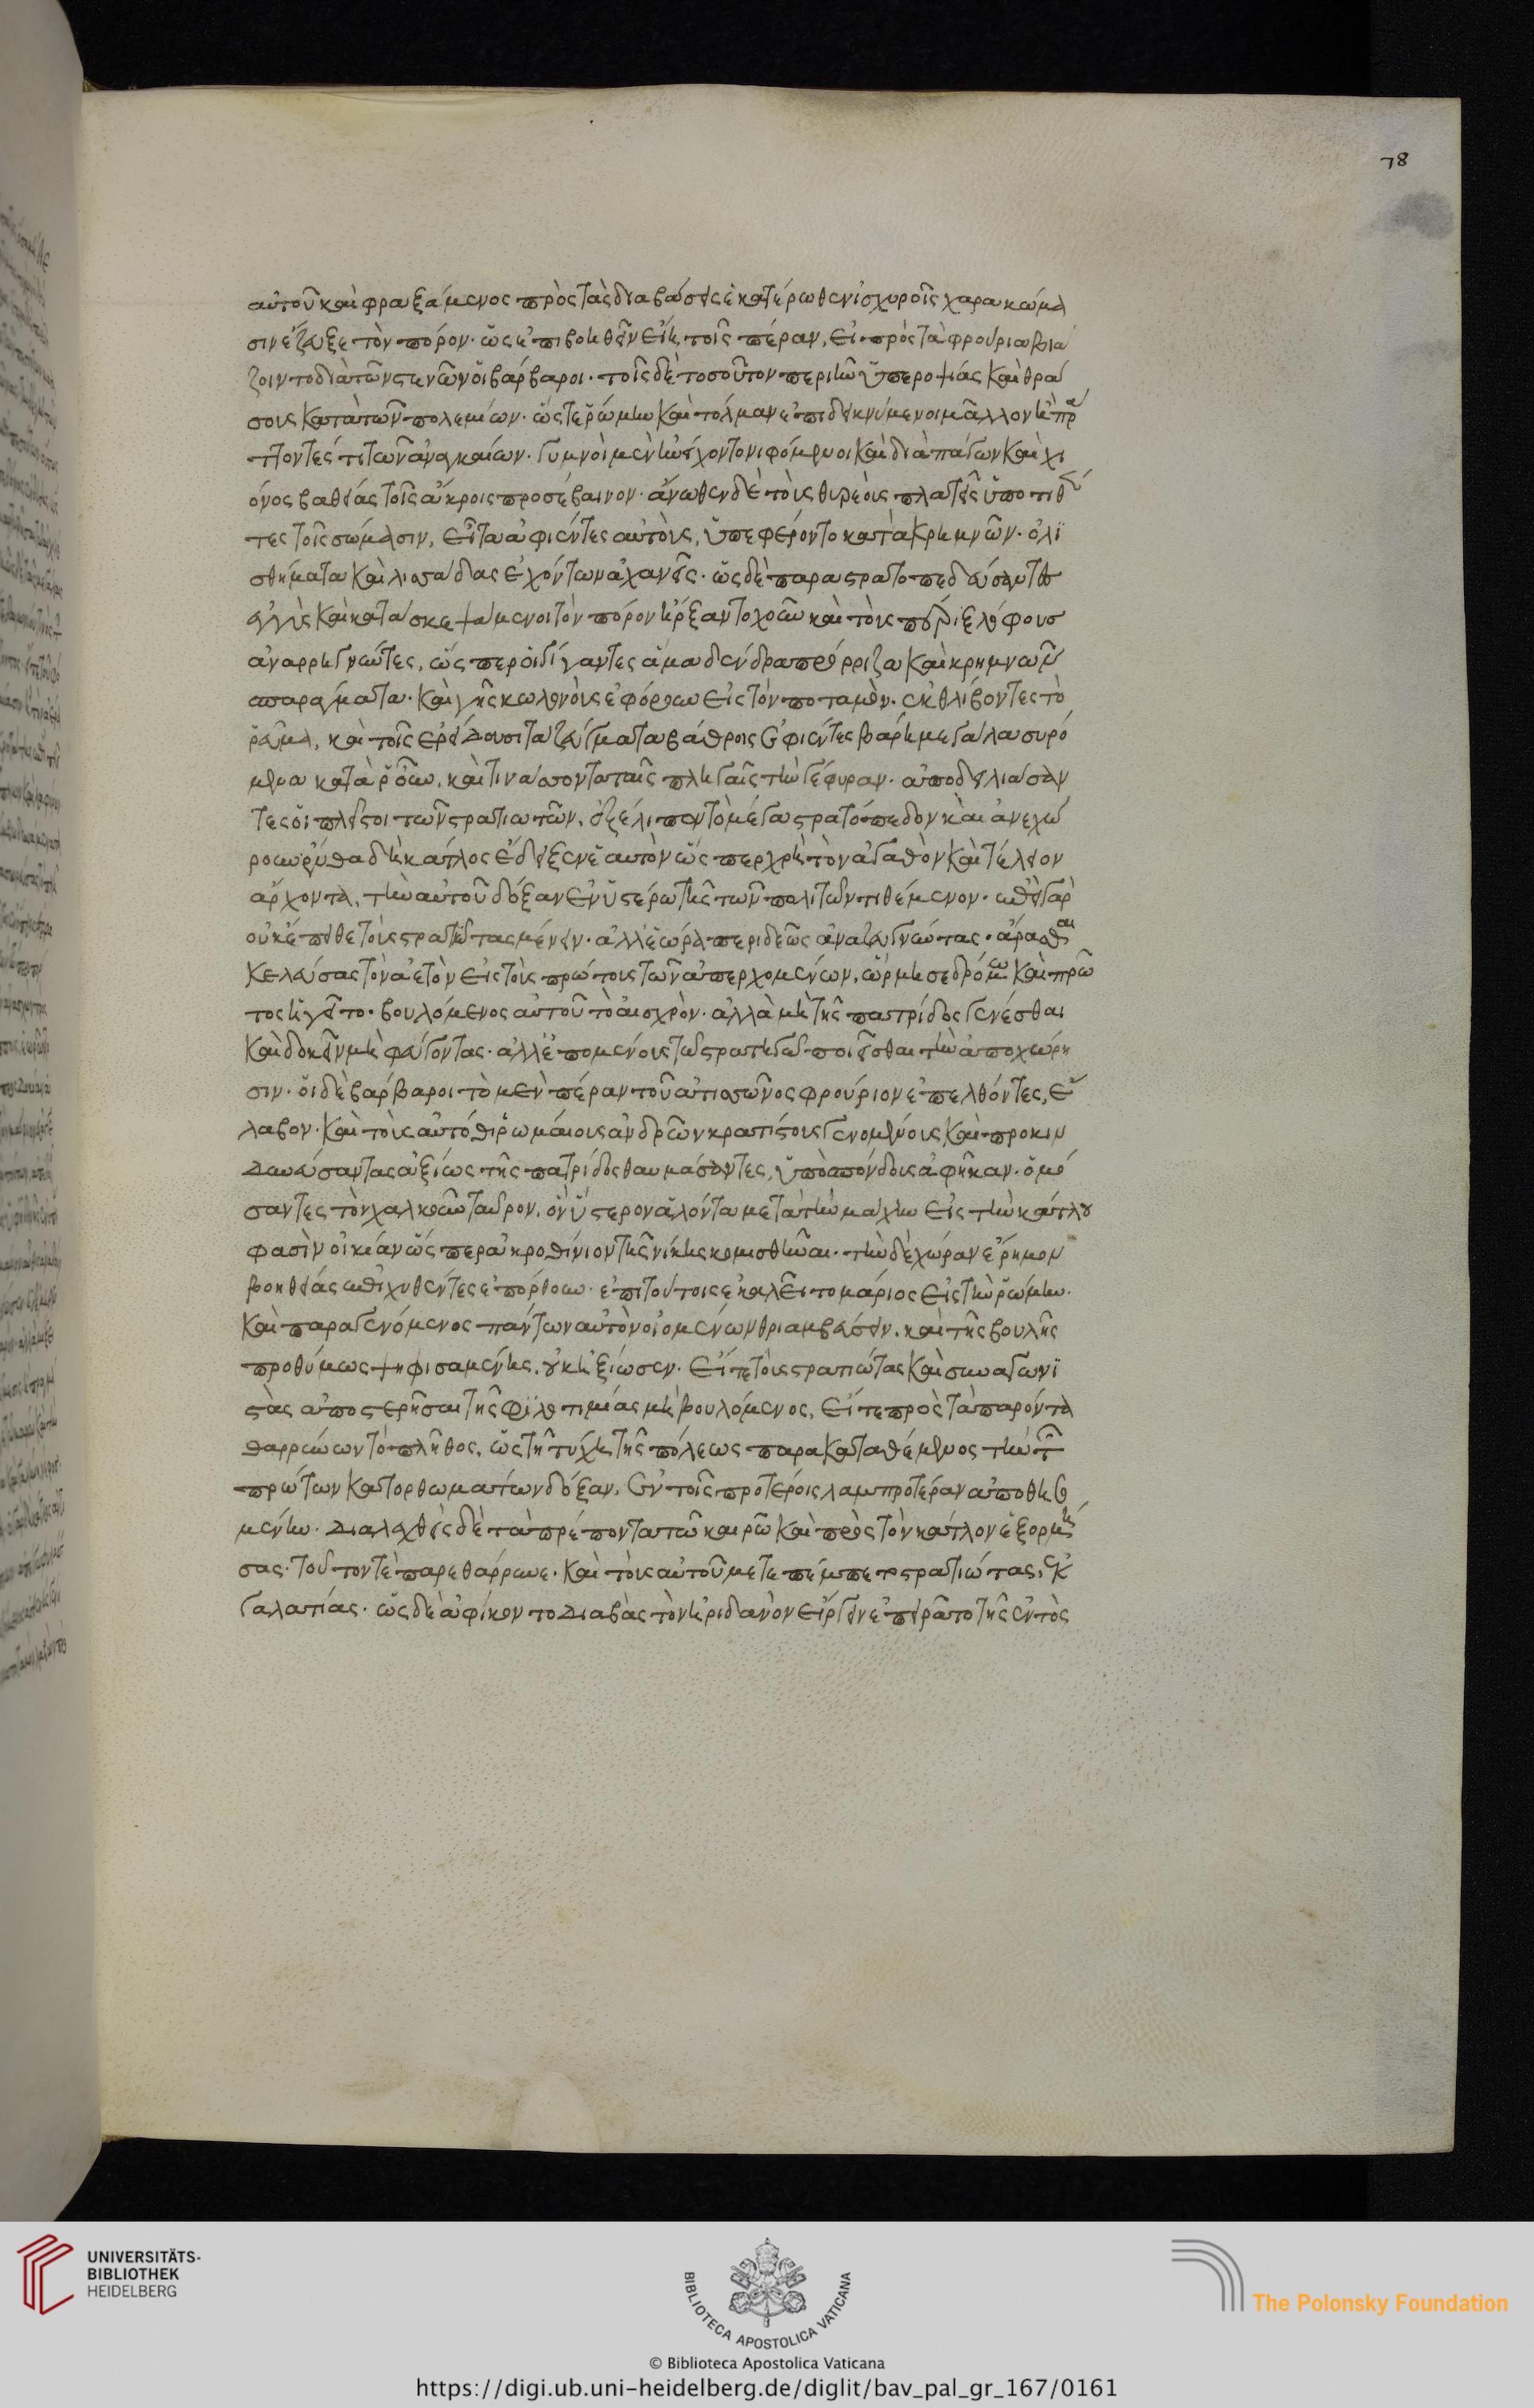 αὐτοῦ καὶ φραξάμενος πρὸς τὰς διαβάσεις ἑκατέρωθεν ἰσχυροῖς χαρακώμα
σιν ἔζευξε τὸν πόρον. ὡς ἐπιβοηθεῖν εἴη τοῖς πέραν, εἰ πρὸς τὰ φρούρια βιά
ζοιντο διὰ τῶν στενῶν οἱ βάρβαροι. τοῖς δὲ τοσοῦτον περιῆν ὑπεροψίας καὶ θρά
σους κατὰ τῶν πολεμίων. ὥστε ῥώμην καὶ τόλμαν ἐπιδεικνύμενοι μᾶλλον ἢ πρα
ττοντές τι τῶν ἀναγκαίων. γυμνοὶ μὲν ἠνείχοντο νιφόμενοι καὶ διὰ πάγων καὶ χι
όνος βαθείας τοῖς ἄκροις προσέβαινον. ἄνωθεν δὲ τοὺς θυρεοὺς πλατεῖς ὑποτιθέν
τες τοῖς σώμασιν, εἶτα ἀφιέντες αὐτοὺς, ὑπεφέροντο κατὰ κρημνῶν. ὀλι
σθήματα καὶ λισσάδας ἐχόντων ἀχανεῖς. ὡς δὲ παραστρατοπεδεύσαντες
ἐγγὺς καὶ κατασκεψάμενοι τὸν πόρον ἤρξαντο χοῦν καὶ τοὺς πέριξ λόφους
ἀναρρηγνύντες, ὥσπερ οἱ γίγαντες ἅμα δένδρα πρόρριζα καὶ κρημνῶν
σπαράγματα. καὶ γῆς κωλονοὺς ἐφόρουν εἰς τὸν ποταμὸν. ἐκθλίβοντες τὸ
ῥεῦμα, καὶ τοῖς ἐρείδουσι τὰ ζεύγματα βάθροις ἐφιέντες βάρη μεγάλα συρό
μενα κατὰ ῥοῦν, καὶ τινάσσοντα ταῖς πληγαῖς τὴν γέφυραν. ἀποδειλιάσαν
τες οἱ πλεῖστοι τῶν στρατιωτῶν, ἐξέλιπον τὸ μέγα στρατόπεδον καὶ ἀνεχώ
ρουν. ἔνθα δὴ κάτλος ἔδειξεν ἑαυτὸν ὥσπερ χρὴ τὸν ἀγαθὸν καὶ τέλειον
ἄρχοντα, τὴν αὐτοῦ δόξαν ἐν ὑστέρω τῆς τῶν πολιτῶν τιθέμενον. ἐπεὶ γὰρ
οὐκ ἔπειθε τοὺς στρατιώτας μένειν. ἀλλ' ἑώρα περιδεῶς ἀναζευγνύντας. ἄρασθαι
κελεύσας τὸν ἀετὸν εἰς τοὺς πρώτους τῶν ἀπερχομένων, ὥρμησε δρόμω καὶ πρῶ
τος ἡγεῖτο. βουλόμενος αὐτοῦ τὸ αἰσχρὸν. ἀλλὰ μὴ τῆς πατρίδος γενέσθαι
καὶ δοκεῖν μὴ φεύγοντας. ἀλλ' ἑπομένους τῶ στρατηγῶ ποιεῖσθαι τὴν ἀποχώρη
σιν. οἱ δὲ βάρβαροι τὸ μὲν πέραν τοῦ ἀτισῶνος φρούριον ἐπελθόντες, ἔ
λαβον. καὶ τοὺς αὐτόθι ῥωμαίους ἀνδρῶν κρατίστους γενομένους καὶ προκιν
δυνεύσαντας ἀξίως τῆς πατρίδος θαυμάσαντες, ὑποσπόνδους ἀφῆκαν. ὀμό
σαντες τὸν χαλκοῦν ταῦρον, ὃν ὕστερον ἁλόντα μετὰ τὴν μάχην εἰς τὴν κάτλου
φασὶν οἰκίαν ὥσπερ ἀκροθίνιον τῆς νίκης κομισθῆναι. τὴν δὲ χώραν ἔρημον
βοηθείας ἐπιχυθέντες ἐπόρθουν. ἐπὶ τούτοις ἐκαλεῖτο μάριος εἰς τὴν ῥώμην.
καὶ παραγενόμενος πάντων αὐτὸν οἰομένων θριαμβεύσειν. καὶ τῆς βουλῆς
προθύμως ψηφισαμένης. οὐκ ἠξίωσεν. εἴτε τοὺς στρατιώτας καὶ συναγωνι
στὰς ἀποστερῆσαι τῆς φιλοτιμίας μὴ βουλόμενος, εἴτε πρὸς τὰ παρόντα
θαρρύνων τὸ πλῆθος, ὡς τῆ τύχη τῆς πόλεως παρακαταθέμενος τὴν τῶν
πρώτων κατορθωμάτων δόξαν, ἐν τοῖς προτέροις λαμπροτέραν ἀποθησο
μένην. διαλεχθεὶς δὲ τὰ πρέποντα τῶ καιρῶ καὶ πρὸς τὸν κάτλον ἐξορμή
σας. τοῦτόν τε παρεθάρρυνε. καὶ τοὺς αὐτοῦ μετεπέμπετο στρατιώτας, ἐκ
γαλατίας. ὡς δὲ ἀφίκοντο διαβὰς τὸν ἠριδανὸν εἴργειν ἐπειρᾶτο τῆς ἐντὸς
78
UNIVERSITÄTS-
BIBLIOTHEK
HEIDELBERG
BIBLIOTECA APOSTOLICA VATICANA
The Polonsky Foundation
© Biblioteca Apostolica Vaticana
https://digi.ub.uni-heidelberg.de/diglit/bav_pal_gr_167/0161